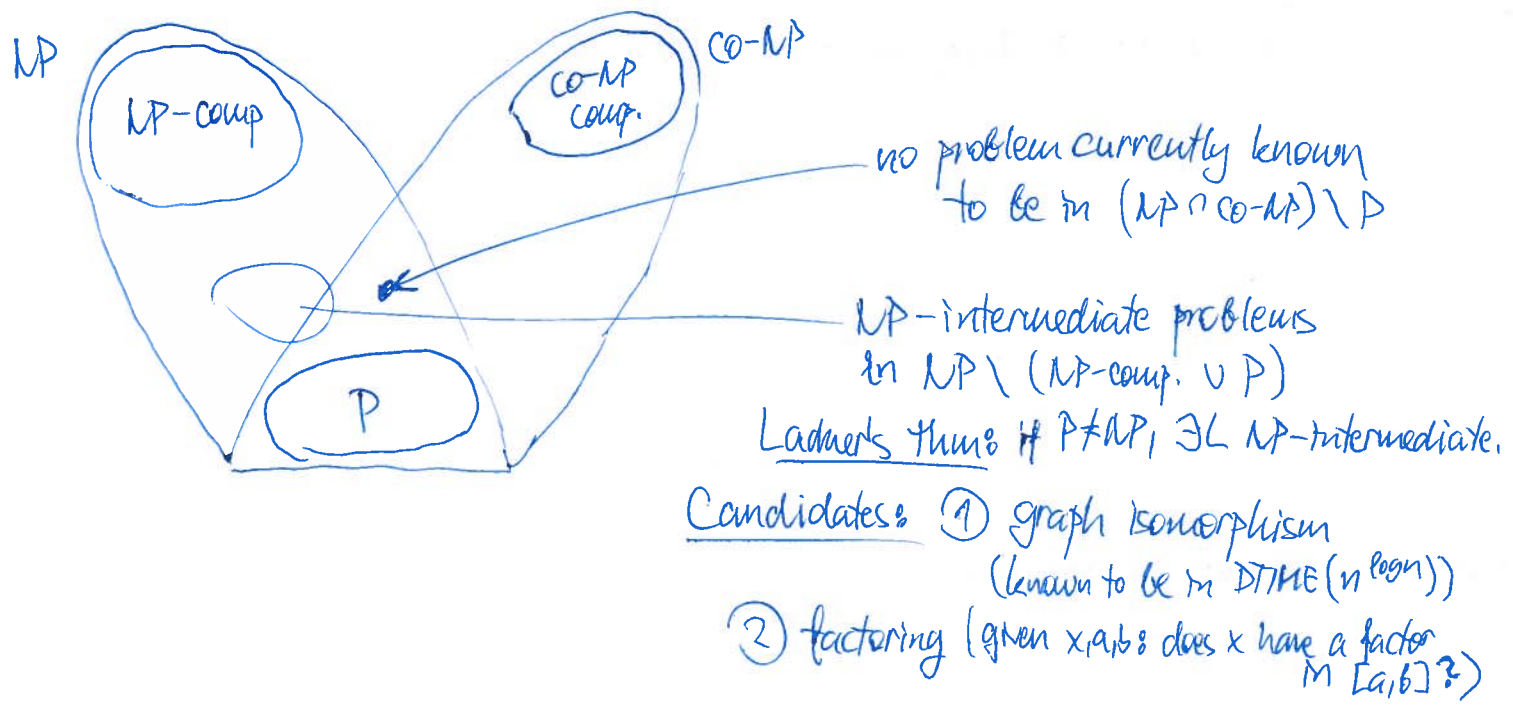 NP
co-NP
NP-comp
co-NP
comp.
no problem currently known
to be in (NP ∩ co-NP) \ P
NP-intermediate problems
in NP \ (NP-comp. ∪ P)
P
Ladner's thm: if P≠NP, ∃L NP-intermediate.
Candidates: ① graph isomorphism
(known to be in DTIME(n^log n))
② factoring (given x,a,b: does x have a factor
in [a,b]?)